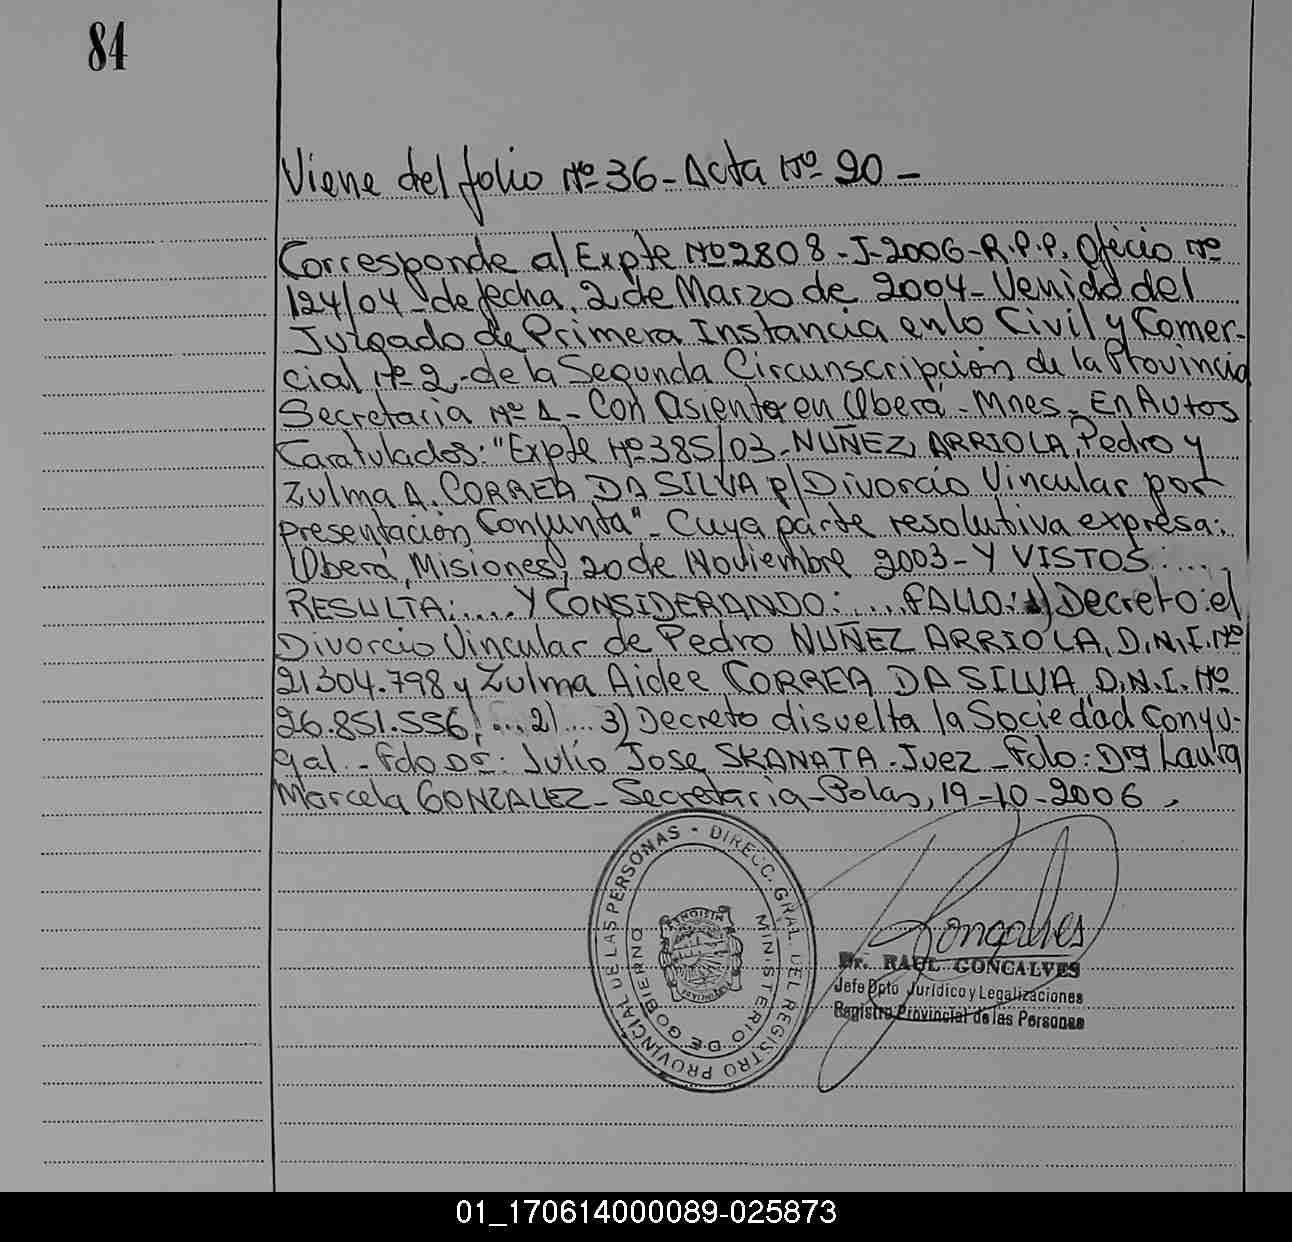 84
Viene del folio Nº 36 - Acta Nº 20 -
Corresponde al Expte Nº 2808 - J - 2006 - R.P.P. Oficio Nº
124/04 - de fecha, 2 de Marzo de 2004 - Venido del
Juzgado de Primera Instancia en lo Civil y Comer-
cial Nº 2, de la Segunda Circunscripción de la Provincia
Secretaria Nº 1 - Con asiento en Oberá - Mnes - En Autos
Caratulados: "Expte Nº 385/03 - NUÑEZ ARRIOLA, Pedro y
Zulma A. CORREA DA SILVA p/ Divorcio Vincular por
presentación Conjunta" - Cuya parte resolutiva expresa:
Oberá, Misiones, 20 de Noviembre 2003 - Y VISTOS: ....
RESULTA: .... Y CONSIDERANDO: .... FALLO: 1) Decreto: el
Divorcio Vincular de Pedro NUÑEZ ARRIOLA, D.N.I. Nº
21304.798 y Zulma Aidee CORREA DA SILVA, D.N.I. Nº
26.851.556, .... 2) .... 3) Decreto disuelta la Sociedad Conyu-
gal. - Fdo Dr. Julio Jose SKANATA. Juez - Fdo: Dra Laura
Marcela GONZALEZ - Secretaria - Polas, 19 - 10 - 2006 .
DIRECC. GRAL. DEL REGISTRO PROVINCIAL DE LAS PERSONAS
MINISTERIO DE GOBIERNO
Goncalves
Dr. RAUL GONCALVES
Jefe Dpto Jurídico y Legalizaciones
Registro Provincial de las Personas
01_170614000089-025873